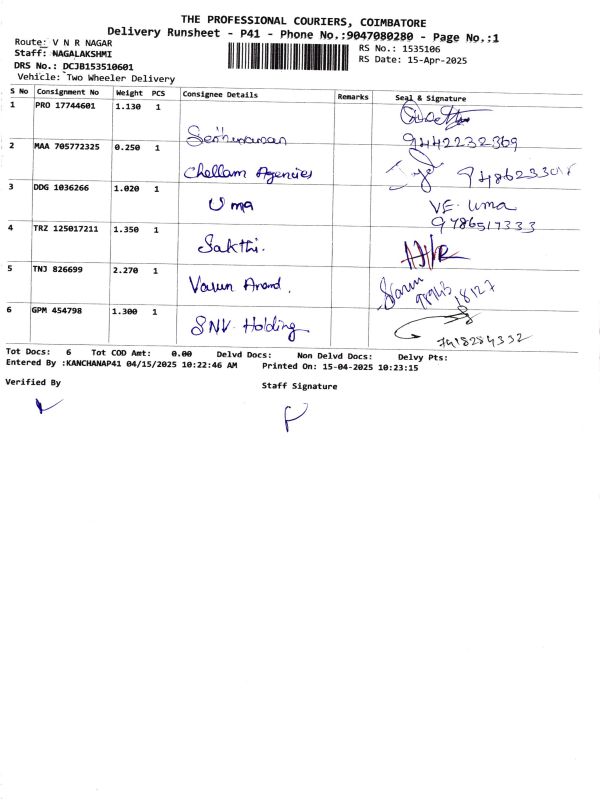 THE PROFESSIONAL COURIERS, COIMBATORE
Delivery Runsheet - P41 - Phone No.:9047080280 - Page No.:1
Route: V N R NAGAR
Staff: NAGALAKSHMI
DRS No.: DCJB153510601
Vehicle: Two Wheeler Delivery
RS No.: 1535106
RS Date: 15-Apr-2025
S No Consignment No Weight PCS Consignee Details Remarks Seal & Signature
1 PRO 17744601 1.130 1 9442232369
2 MAA 705772325 0.250 1 Chellam Agencies
3 DDG 1036266 1.020 1 Uma VE. Uma
9786517333
4 TRZ 125017211 1.350 1 Sakthi.
5 TNJ 826699 2.270 1 Varun Anand.
98943 18127
6 GPM 454798 1.300 1 SNV. Holding
7418284332
Tot Docs: 6 Tot COD Amt: 0.00 Delvd Docs: Non Delvd Docs: Delvy Pts:
Entered By :KANCHANAP41 04/15/2025 10:22:46 AM Printed On: 15-04-2025 10:23:15
Verified By Staff Signature